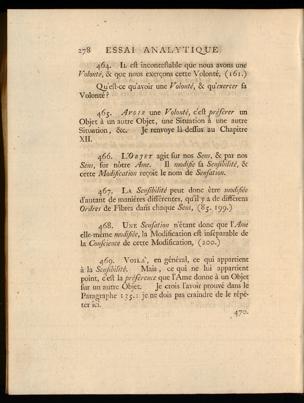 278 ESSAI ANALYTIQUE
464. IL est incontestable que nous avons une
Volonté, & que nous exerçons cette Volonté, (161.)
Qu'est-ce qu'avoir une Volonté, & qu'exercer sa
Volonté?
465. AVOIR une Volonté, c'est préférer un
Objet à un autre Objet, une Situation à une autre
Situation, &c. Je renvoye là-dessus au Chapitre
XII.
466. L'OBJET agit sur nos Sens, & par nos
Sens, sur nôtre Ame. Il modifie sa Sensibilité, &
cette Modification reçoit le nom de Sensation.
467. LA Sensibilité peut donc être modifiée
d'autant de manières différentes, qu'il y a de différens
Ordres de Fibres dans chaque Sens, (85. 199.)
468. UNE Sensation n'étant donc que l'Ame
elle-même modifiée, la Modification est inséparable de
la Conscience de cette Modification, (200.)
469. VOILA', en général, ce qui appartient
à la Sensibilité. Mais, ce qui ne lui appartient
point, c'est la préférence que l'Ame donne à un Objet
sur un autre Objet. Je crois l'avoir prouvé dans le
Paragraphe 175.: je ne dois pas craindre de le répé-
ter ici.
470.